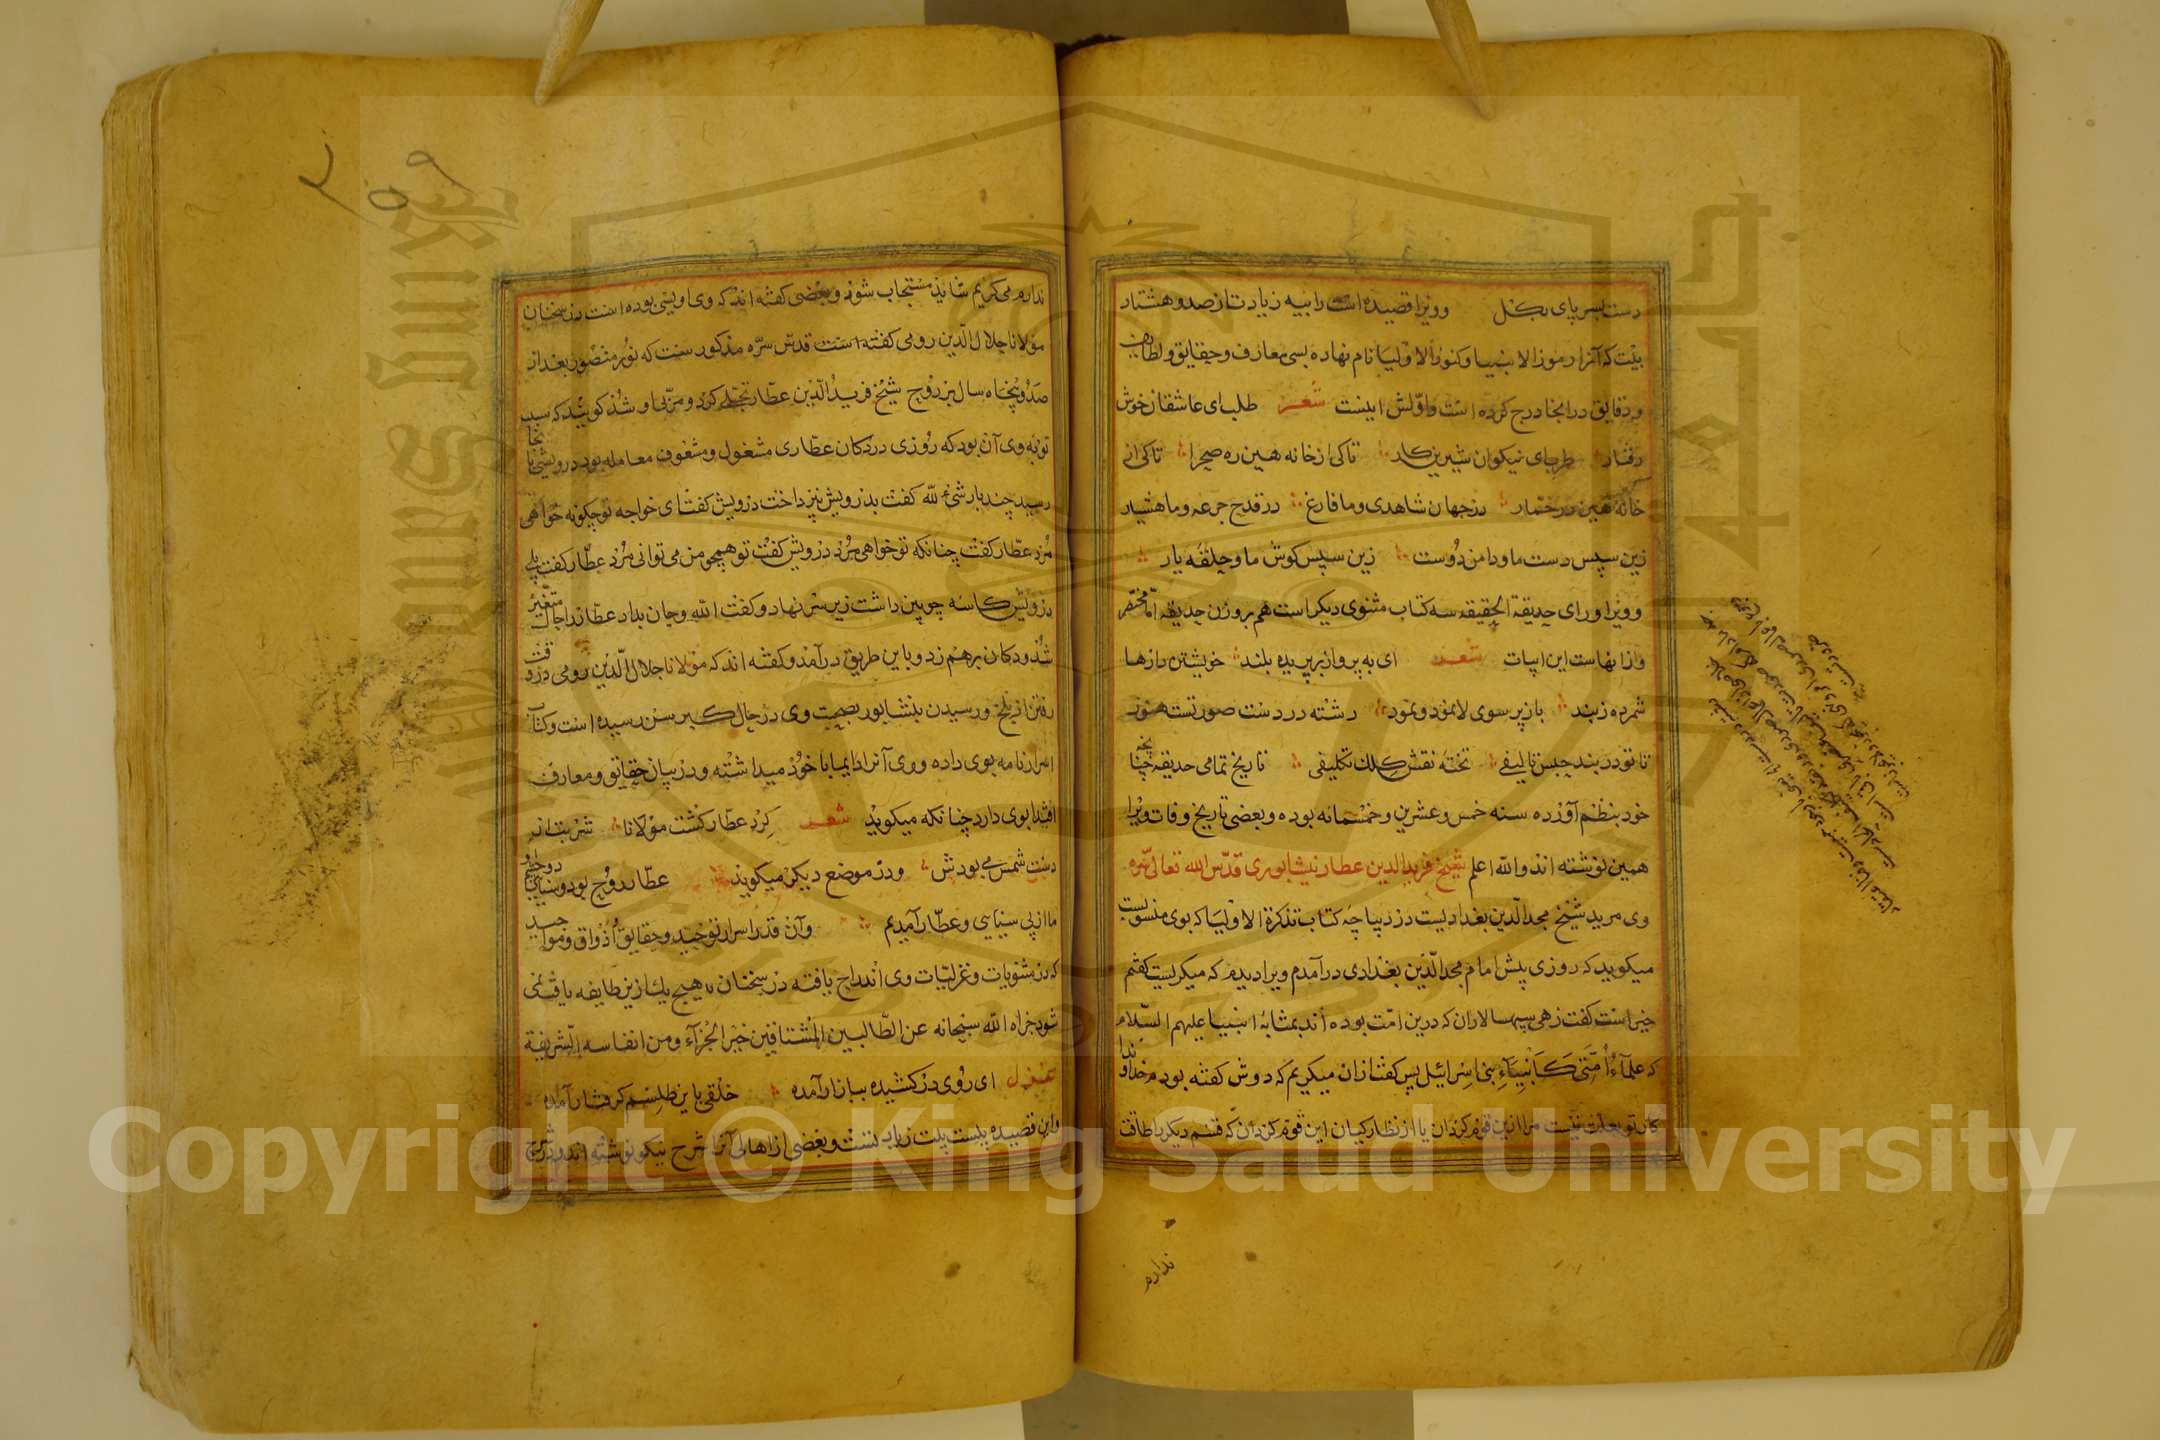 دست بسر پای بکل ویرا قصیده است رابیه زیادت از صد و هشتاد
بیت که آنرا رموز الانبیا و کنوز الاولیا نام نهاده بسی معارف و حقایق و لطایف
و دقایق در انجا درج کرده است و اولش اینست شعر طلب ای عاشقان خوش
رفتار طرب ای نیکوان شیرین کار تا کی از خانه هین ره صحرا تا کی از
خانه هین در خمار در جهان شاهدی و ما فارغ در قدح جرعه و ما هشیار
زین سپس دست ما و دامن دوست زین سپس کوش ما و حلقه یار
و ویرا ورای حدیقة الحقیقه سه کتاب مثنوی دیکر است هم بر وزن حدیقه اما مختصر
و از انهاست این ابیات شعر ای به پرواز بر پریده بلند خویشتن را رها
شمرده ز بند باز پر سوی لایموذ و یموذ رشته در دست صورتست هنوز
تا تو در بند حبس تالیفی تخته نقش کلک تکلیفی تاریخ تمامی حدیقه چنانچه
خود بنظم آورده سنه خمس و عشرین و خمسمائه بوده و بعضی تاریخ وفات ویرا
همین نوشته اند و الله اعلم شیخ فرید الدین عطار نیشابوری قدس الله تعالی سره
وی مرید شیخ مجد الدین بغدادیست در دیباچه کتاب تذکرة الاولیا که بوی منسوبست
میکوید که روزی پیش امام مجد الدین بغدادی در آمدم ویرا دیدم که میکریست کفتم
خیر است کفت زهی سپهسالاران که درین امت بوده اند بمثابه انبیا علیهم السلام
که علماء امتی کانبیاء بنی اسرائیل پس کفت از ان میکریم که دوش کفته بودم خداوندا
کار تو بعلت نیست مرا ازین قوم کردان یا از نظارکیان این قوم کردان که قسم دیکر را طاقت
ندارم
ندارم می کریم شاید مستجاب شود و بعضی کفته اند که وی اویسی بوده است در سخنان
مولانا جلال الدین رومی کفته است قدس سره مذکور ست که نور منصور بعد از
صد و پنجاه سال بر روح شیخ فرید الدین عطار تجلی کرد و مربی او شد کویند که سبب
توبه وی آن بود که روزی در دکان عطاری مشغول و مشغوف معامله بود درویشی بانجا
رسید چند بار شیء لله کفت بدرویش نپرداخت درویش کفت ای خواجه تو چکونه خواهی
مرد عطار کفت چنانکه تو خواهی مرد درویش کفت تو همچو من می توانی مرد عطار کفت بلی
درویش کاسه چوبین داشت زیر سر نهاد و کفت الله و جان بداد عطار را حال متغیر
شد و دکان برهم زد و باین طریق در آمد و کفته اند که مولانا جلال الدین رومی در وقت
رفتن از بلخ و رسیدن بنیشابور بصحبت وی در حال کبر سن رسیده است و کتاب
اسرارنامه بوی داده و وی آنرا دایما با خود میداشته و در بیان حقایق و معارف
اقتدا بوی دارد چنانکه میکوید شعر کرد عطار کشت مولانا شربت از
دست شمس می بودش و در موضع دیکر میکوید عطار روح بود و سنایی دو چشم او
ما از پی سنایی و عطار آمدیم و آن قدر اسرار توحید و حقایق اذواق و مواجید
که در مثنویات و غزلیات وی اندراج یافته در سخنان هیچ یک ازین طایفه یافت نمی
شود جزاه الله سبحانه عن الطالبین المشتاقین خیر الجزاء و من انفاسه الشریفة
غزل ای روی در کشیده ببازار آمده خلقی باین طلسم کرفتار آمده
و این قصیده بیست بیت زیادتست و بعضی از اهالی آنرا شرح نیکو نوشته اند و در شرح
Copyright © King Saud University